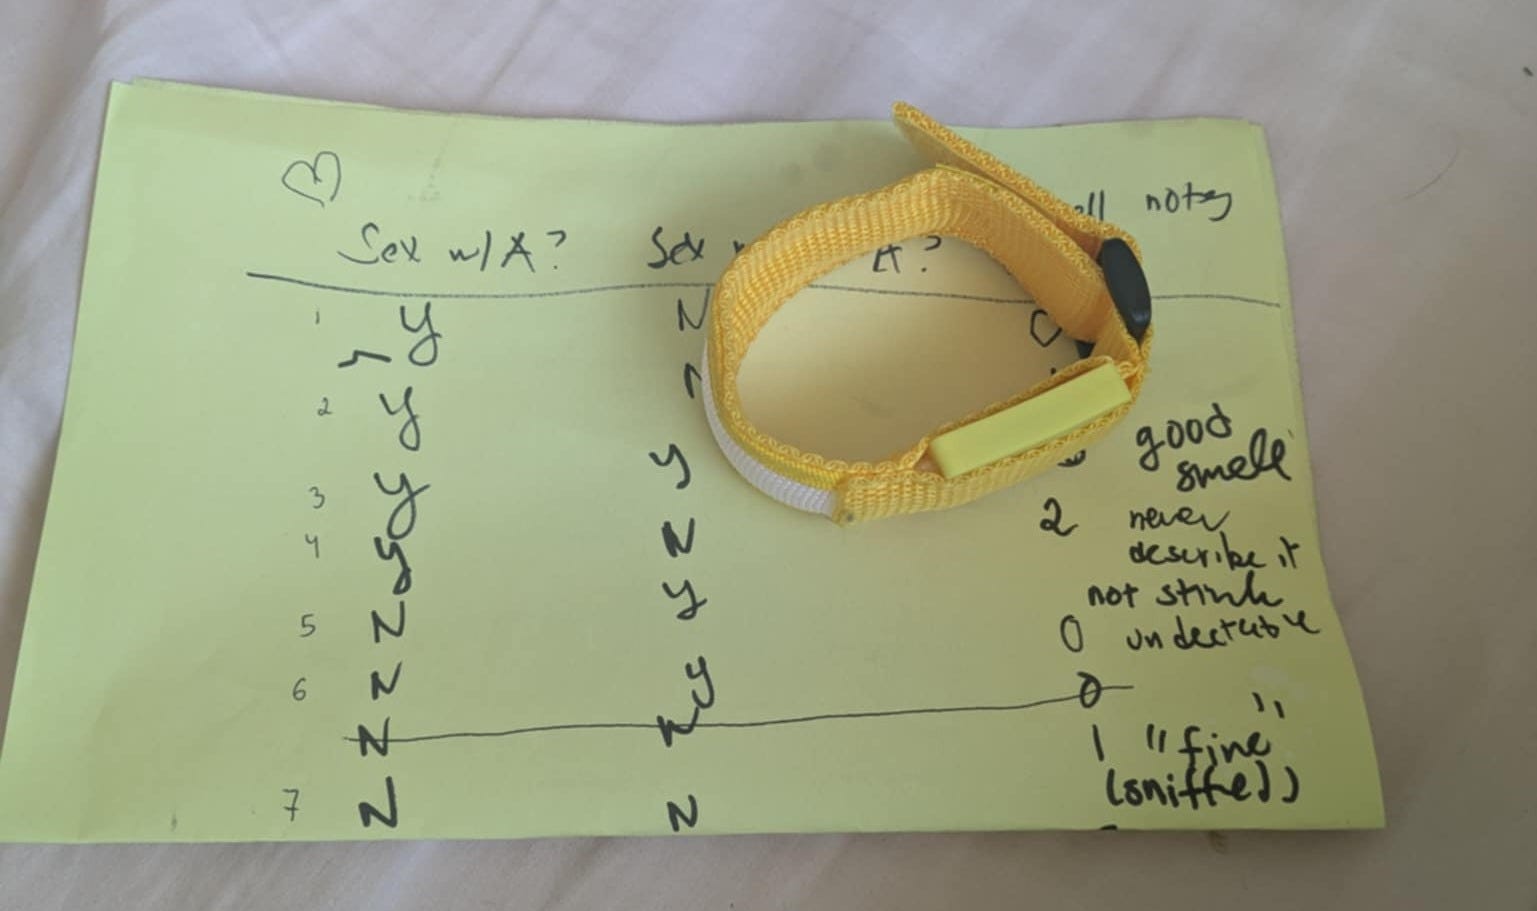 Sex w/A? Sex A? notes
1 y N
y
2 y
3 y y good smell
4 y N 2 never describe it
not stink
5 N y 0 undectable
6 N y 0 "
N N 1 "fine" (sniffed)
7 N N